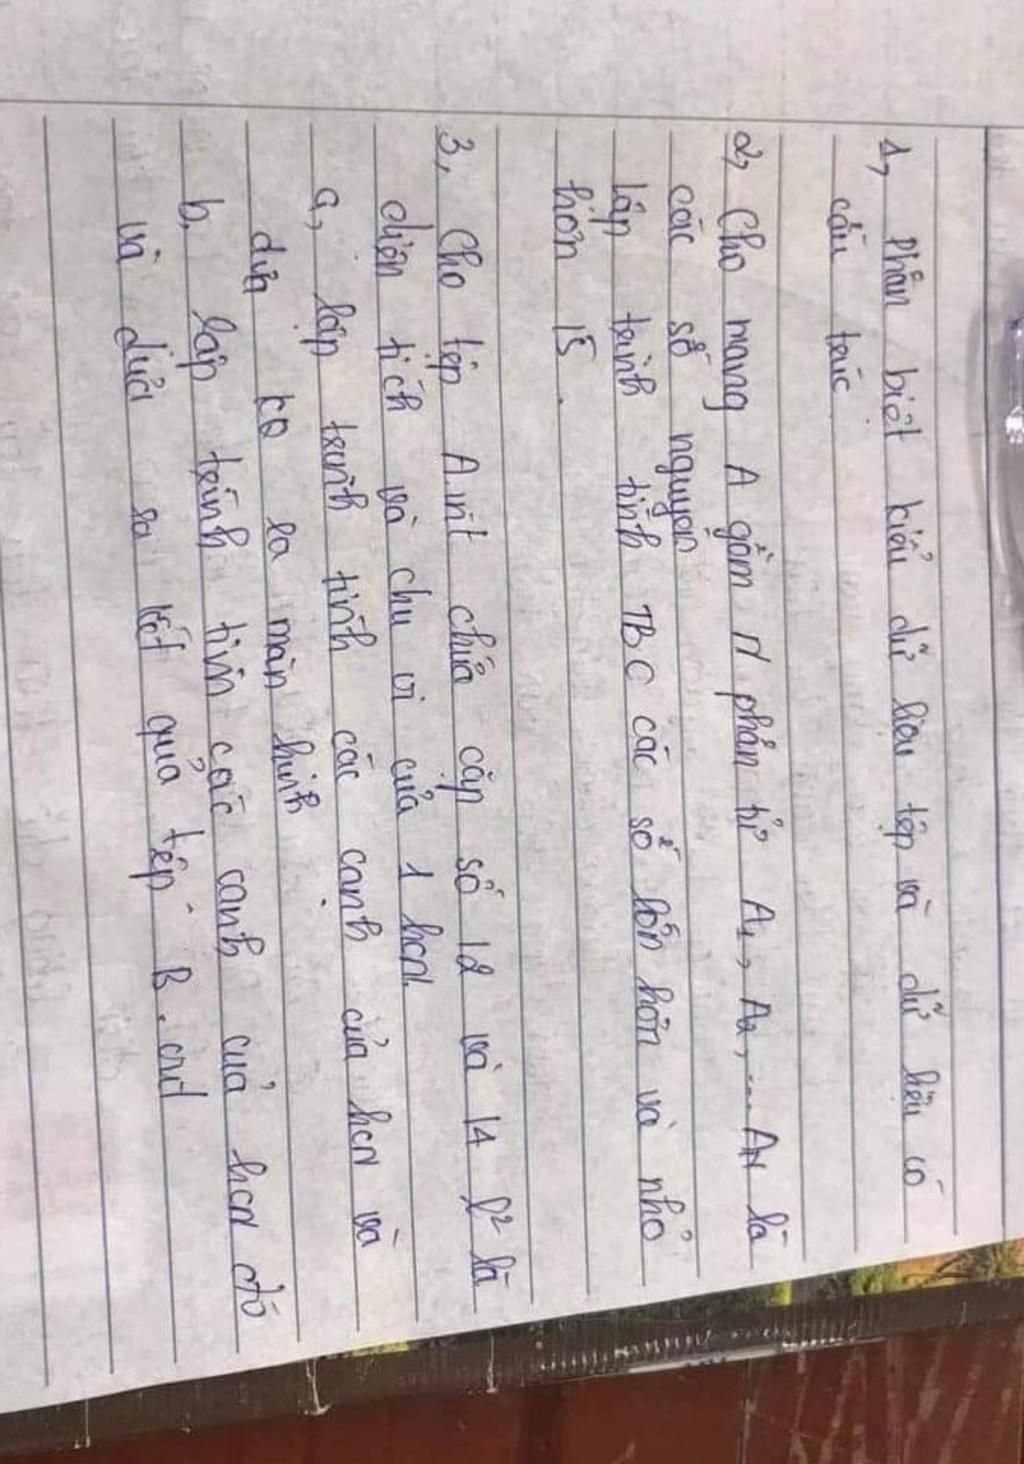 1, phân biệt kiểu dữ liệu tệp và dữ liệu có
cấu trúc
2, Cho mang A gồm N phần tử A1, A2, ... AN là
các số nguyen
lập trình tính TBC các số lớn hơn và nhỏ
hơn 15.
3, Cho tệp A.int chứa cặp số 12 và 14 l² là
diện tích và chu vi của 1 hcn.
a, lập trình tính các cạnh của hcn và
đưa KQ ra màn hình
b, lập trình tính các canh của hcn đó
và đưa ra kết quả tệp B.out